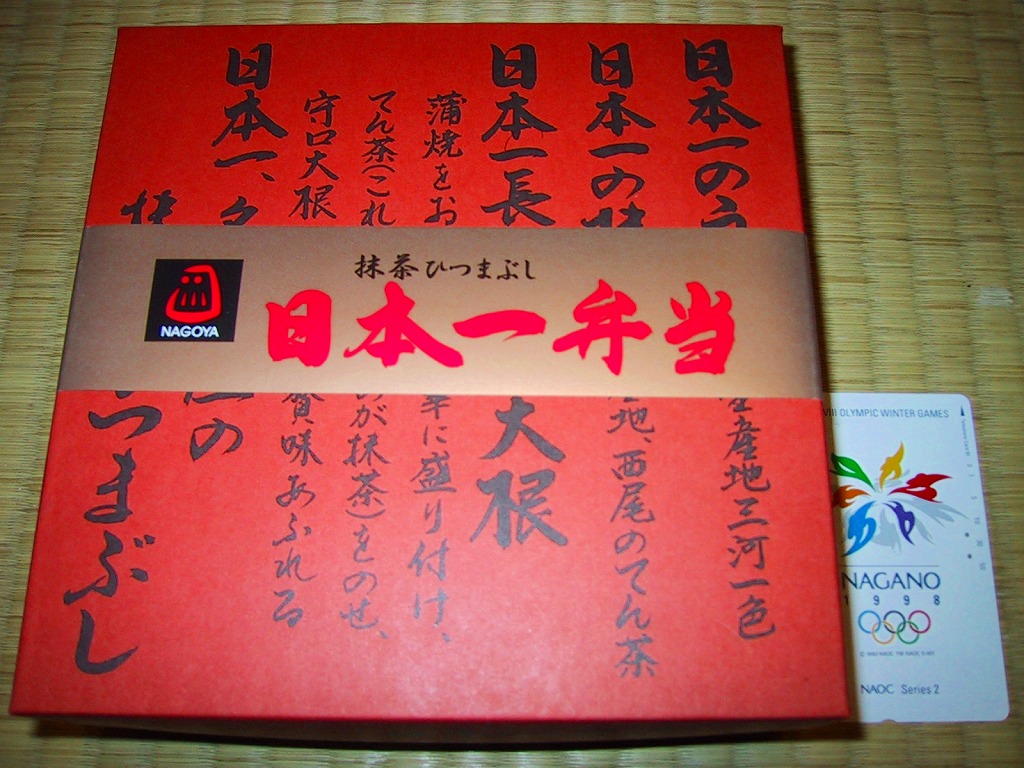 日本一の
産地三河一色
日本一の抹
産地、西尾のてん茶
日本一長
大根
蒲焼をお
に盛り付け、
てん茶(これ
のが抹茶)をのせ、
守口大根
味あふれる
日本一、
の
つまぶし
抹茶ひつまぶし
日本一弁当
NAGOYA
VIII OLYMPIC WINTER GAMES
NAGANO
1998
NAOC Series 2